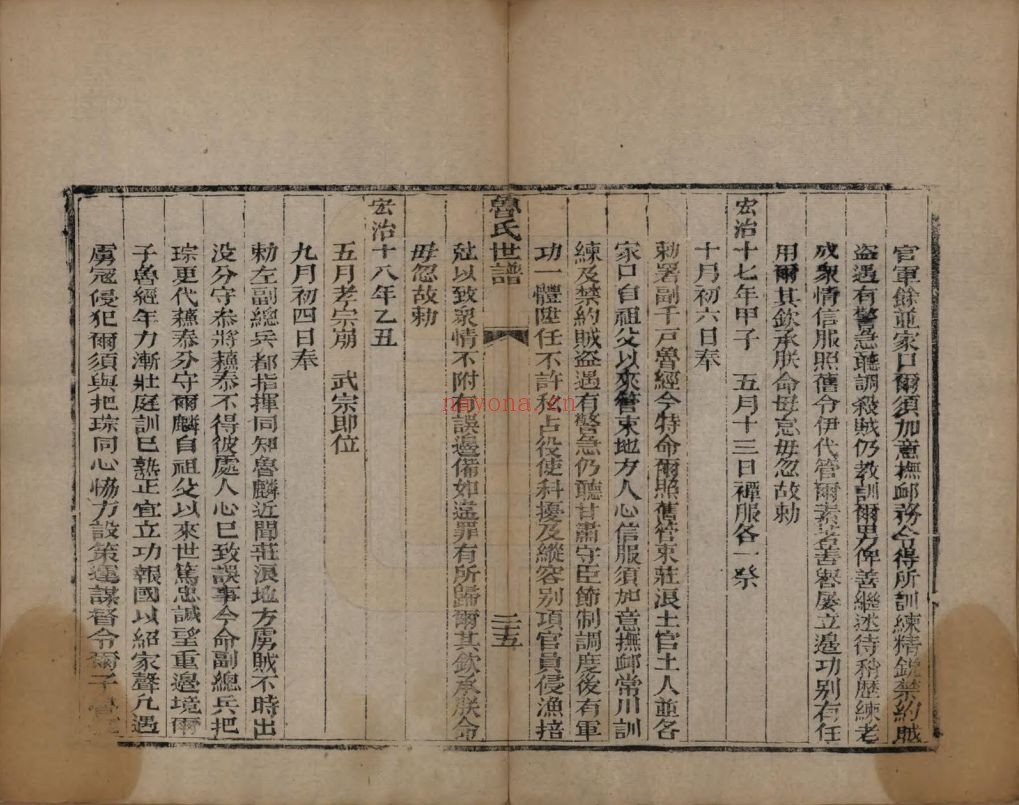 官軍餘並家口爾須加意撫卹務令得所訓練精銳禁約賊
盜遇有警急聽調殺賊仍教訓爾男俾善繼述待稍歷練老
成衆情信服照舊令伊代管爾素著善譽屢立邊功別有任
用爾其欽承朕命毋怠毋忽故勅
宏治十七年甲子 五月十三日禫服各一祭
十月初六日奉
勅署副千戶魯經今特命爾照舊管束莊浪土官土人並各
家口自祖父以來管束地方人心信服須加意撫卹常川訓
練及禁約賊盜遇有警急仍聽甘肅守臣節制調度後有軍
功一體陞任不許私占役使科擾及縱容別項官員侵漁掊
尅以致衆情不附有誤邊備如違罪有所歸爾其欽承朕命
毋忽故勅
宏治十八年乙丑
五月孝宗崩 武宗即位
九月初四日奉
勅左副總兵都指揮同知魯麟近聞莊浪地方虜賊不時出
没分守叅將蘓泰不得彼處人心已致誤事今命副總兵把
琮更代蘓泰分守爾麟自祖父以來世篤忠誠望重邊境爾
子魯經年力漸壯庭訓已熟正宜立功報國以紹家聲凡遇
虜寇侵犯爾須與把琮同心恊力設策運謀督令爾子
魯氏世譜
三五
nayona.cn